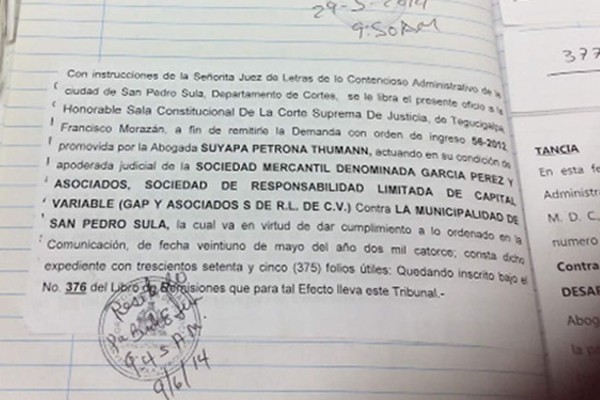 29-5-2014
9:50AM
377
Con instrucciones de la Señorita Juez de Letras de lo Contencioso Administrativo de la
ciudad de San Pedro Sula, Departamento de Cortes, se le libra el presente oficio a la
Honorable Sala Constitucional De La Corte Suprema De Justicia, de Tegucigalpa
Francisco Morazán, a fin de remitirle la Demanda con orden de ingreso 56-2012
promovida por la Abogada SUYAPA PETRONA THUMANN, actuando en su condición de
apoderada judicial de la SOCIEDAD MERCANTIL DENOMINADA GARCIA PEREZ Y
ASOCIADOS, SOCIEDAD DE RESPONSABILIDAD LIMITADA DE CAPITAL
VARIABLE (GAP Y ASOCIADOS S DE R.L. DE C.V.) Contra LA MUNICIPALIDAD DE
SAN PEDRO SULA, la cual va en virtud de dar cumplimiento a lo ordenado en la
Comunicación, de fecha veintiuno de mayo del año dos mil catorce; consta dicho
expediente con trescientos setenta y cinco (375) folios útiles: Quedando inscrito bajo el
No. 376 del Libro de Remisiones que para tal Efecto lleva este Tribunal.-
9:45 A.M.
9/6/14
TANCIA
En esta fe
Administra
M. D. C.,
numero
Contra
DESAR
Abog
la p